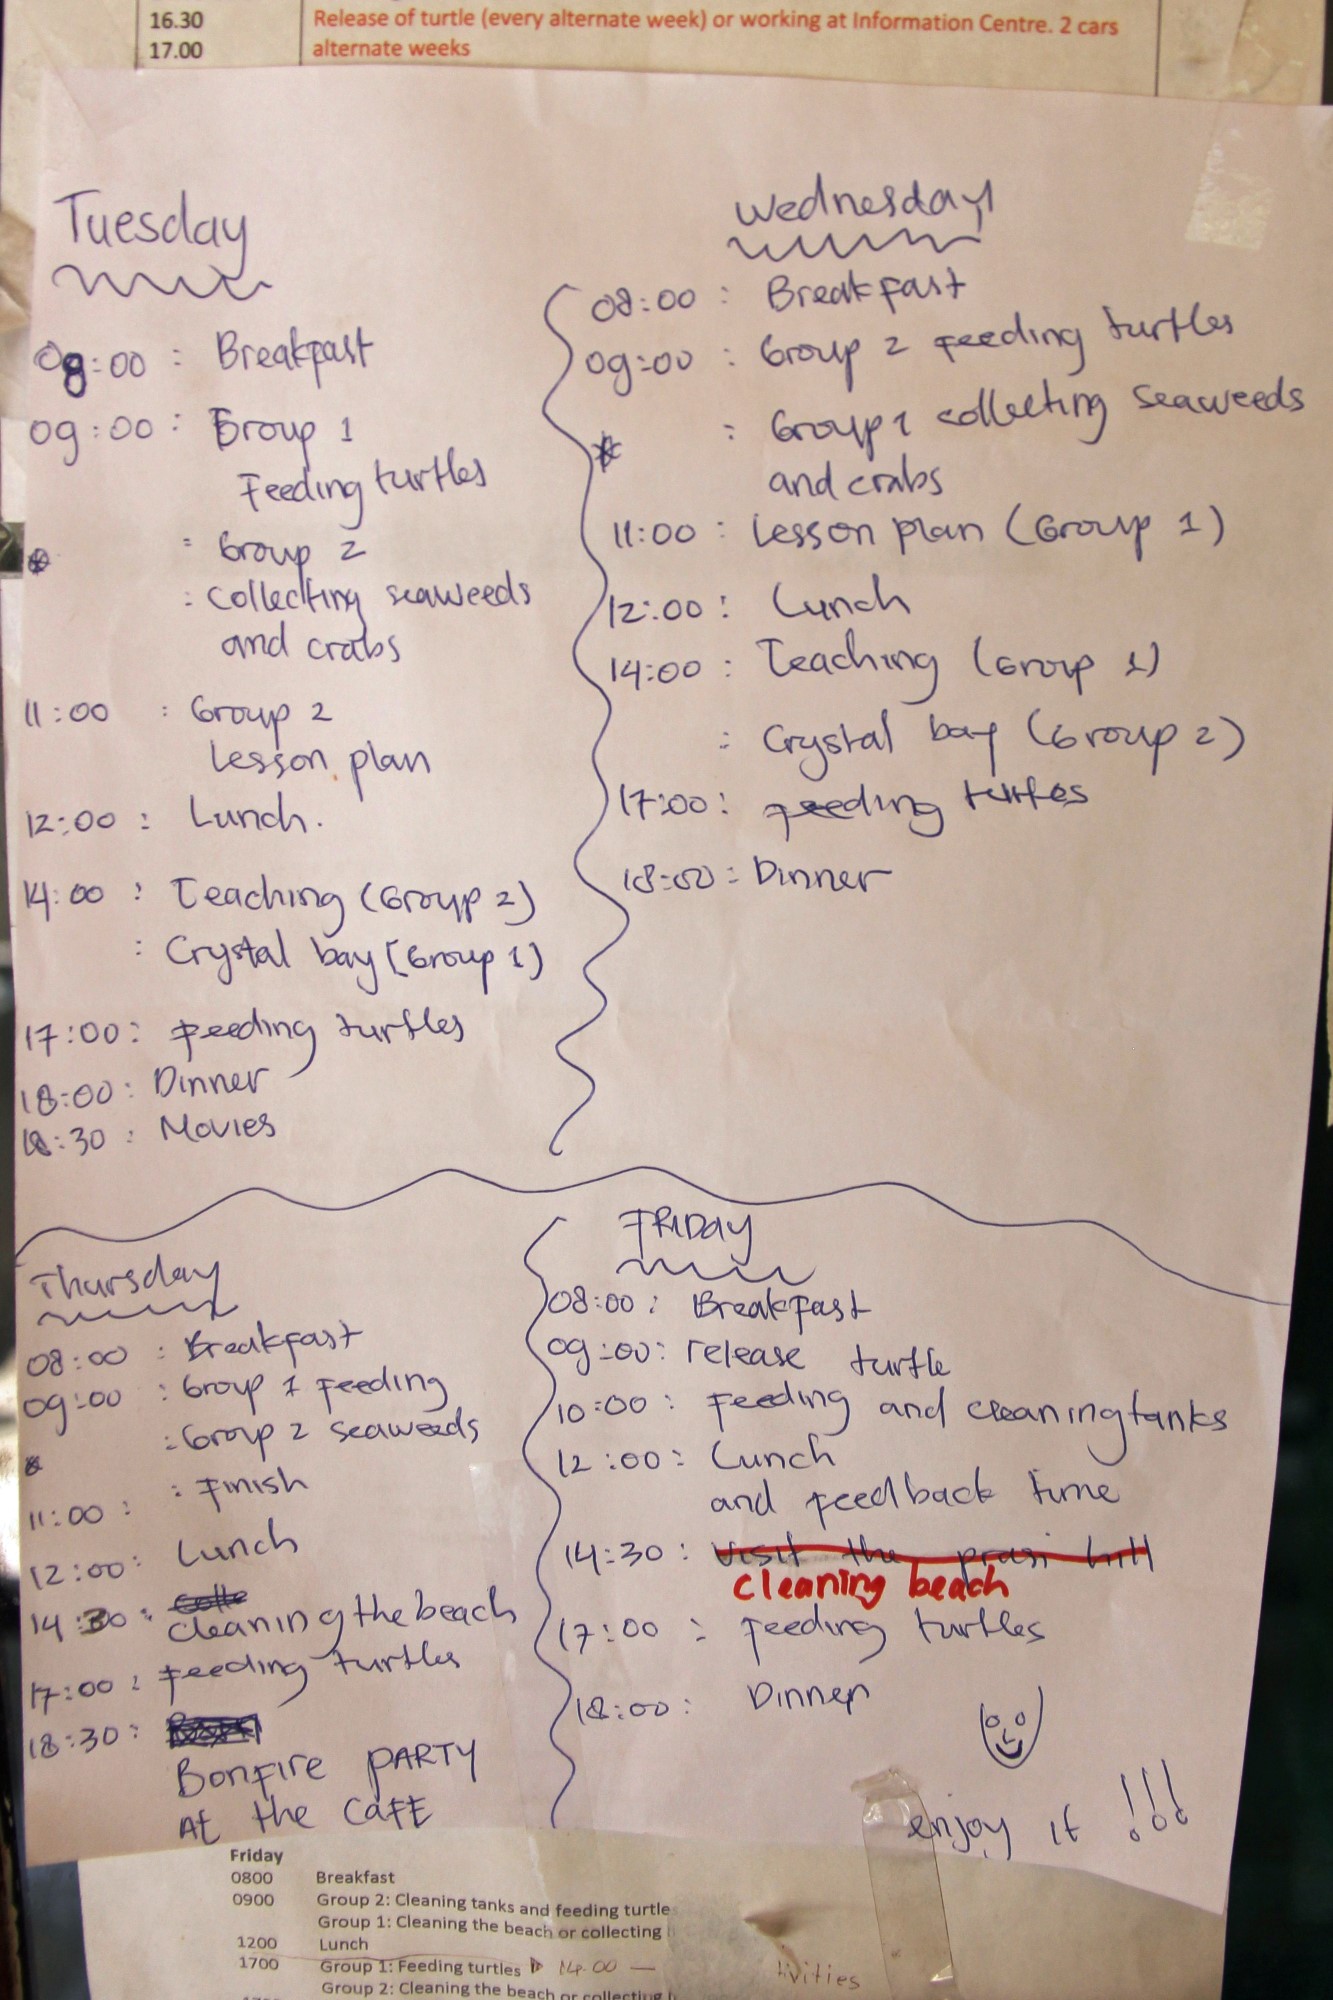 16.30 Release of turtle (every alternate week) or working at Information Centre. 2 cars
17.00 alternate weeks
Tuesday
08:00 : Breakfast
09:00 : Group 1
Feeding turtles
: Group 2
: collecting seaweeds
and crabs
11:00 : Group 2
Lesson plan
12:00 : Lunch.
14:00 : Teaching (Group 2)
: Crystal bay (Group 1)
17:00 : Feeding turtles
18:00 : Dinner
18:30 : Movies
Wednesday
08:00 : Breakfast
09:00 : Group 2 feeding turtles
: Group 1 collecting seaweeds
and crabs
11:00 : Lesson plan (Group 1)
12:00 : Lunch
14:00 : Teaching (Group 1)
: Crystal bay (Group 2)
17:00 : feeding turtles
18:00 : Dinner
Thursday
08:00 : Breakfast
09:00 : Group 1 Feeding
: Group 2 seaweeds
11:00 : : Finish
12:00 : Lunch
14:30 : cleaning the beach
17:00 : Feeding turtles
18:30 :
Bonfire PARTY
At the CAFE
FRIDAY
08:00 : Breakfast
09:00 : release turtle
10:00 : Feeding and cleaning tanks
12:00 : Lunch
and feedback time
14:30 : visit the prasi hill
cleaning beach
17:00 : feeding turtles
18:00 : Dinner
enjoy it !!!
Friday
0800 Breakfast
0900 Group 2: Cleaning tanks and feeding turtle
Group 1: Cleaning the beach or collecting
1200 Lunch
1700 Group 1: Feeding turtles 14.00 —
Group 2: Cleaning the beach or collecting